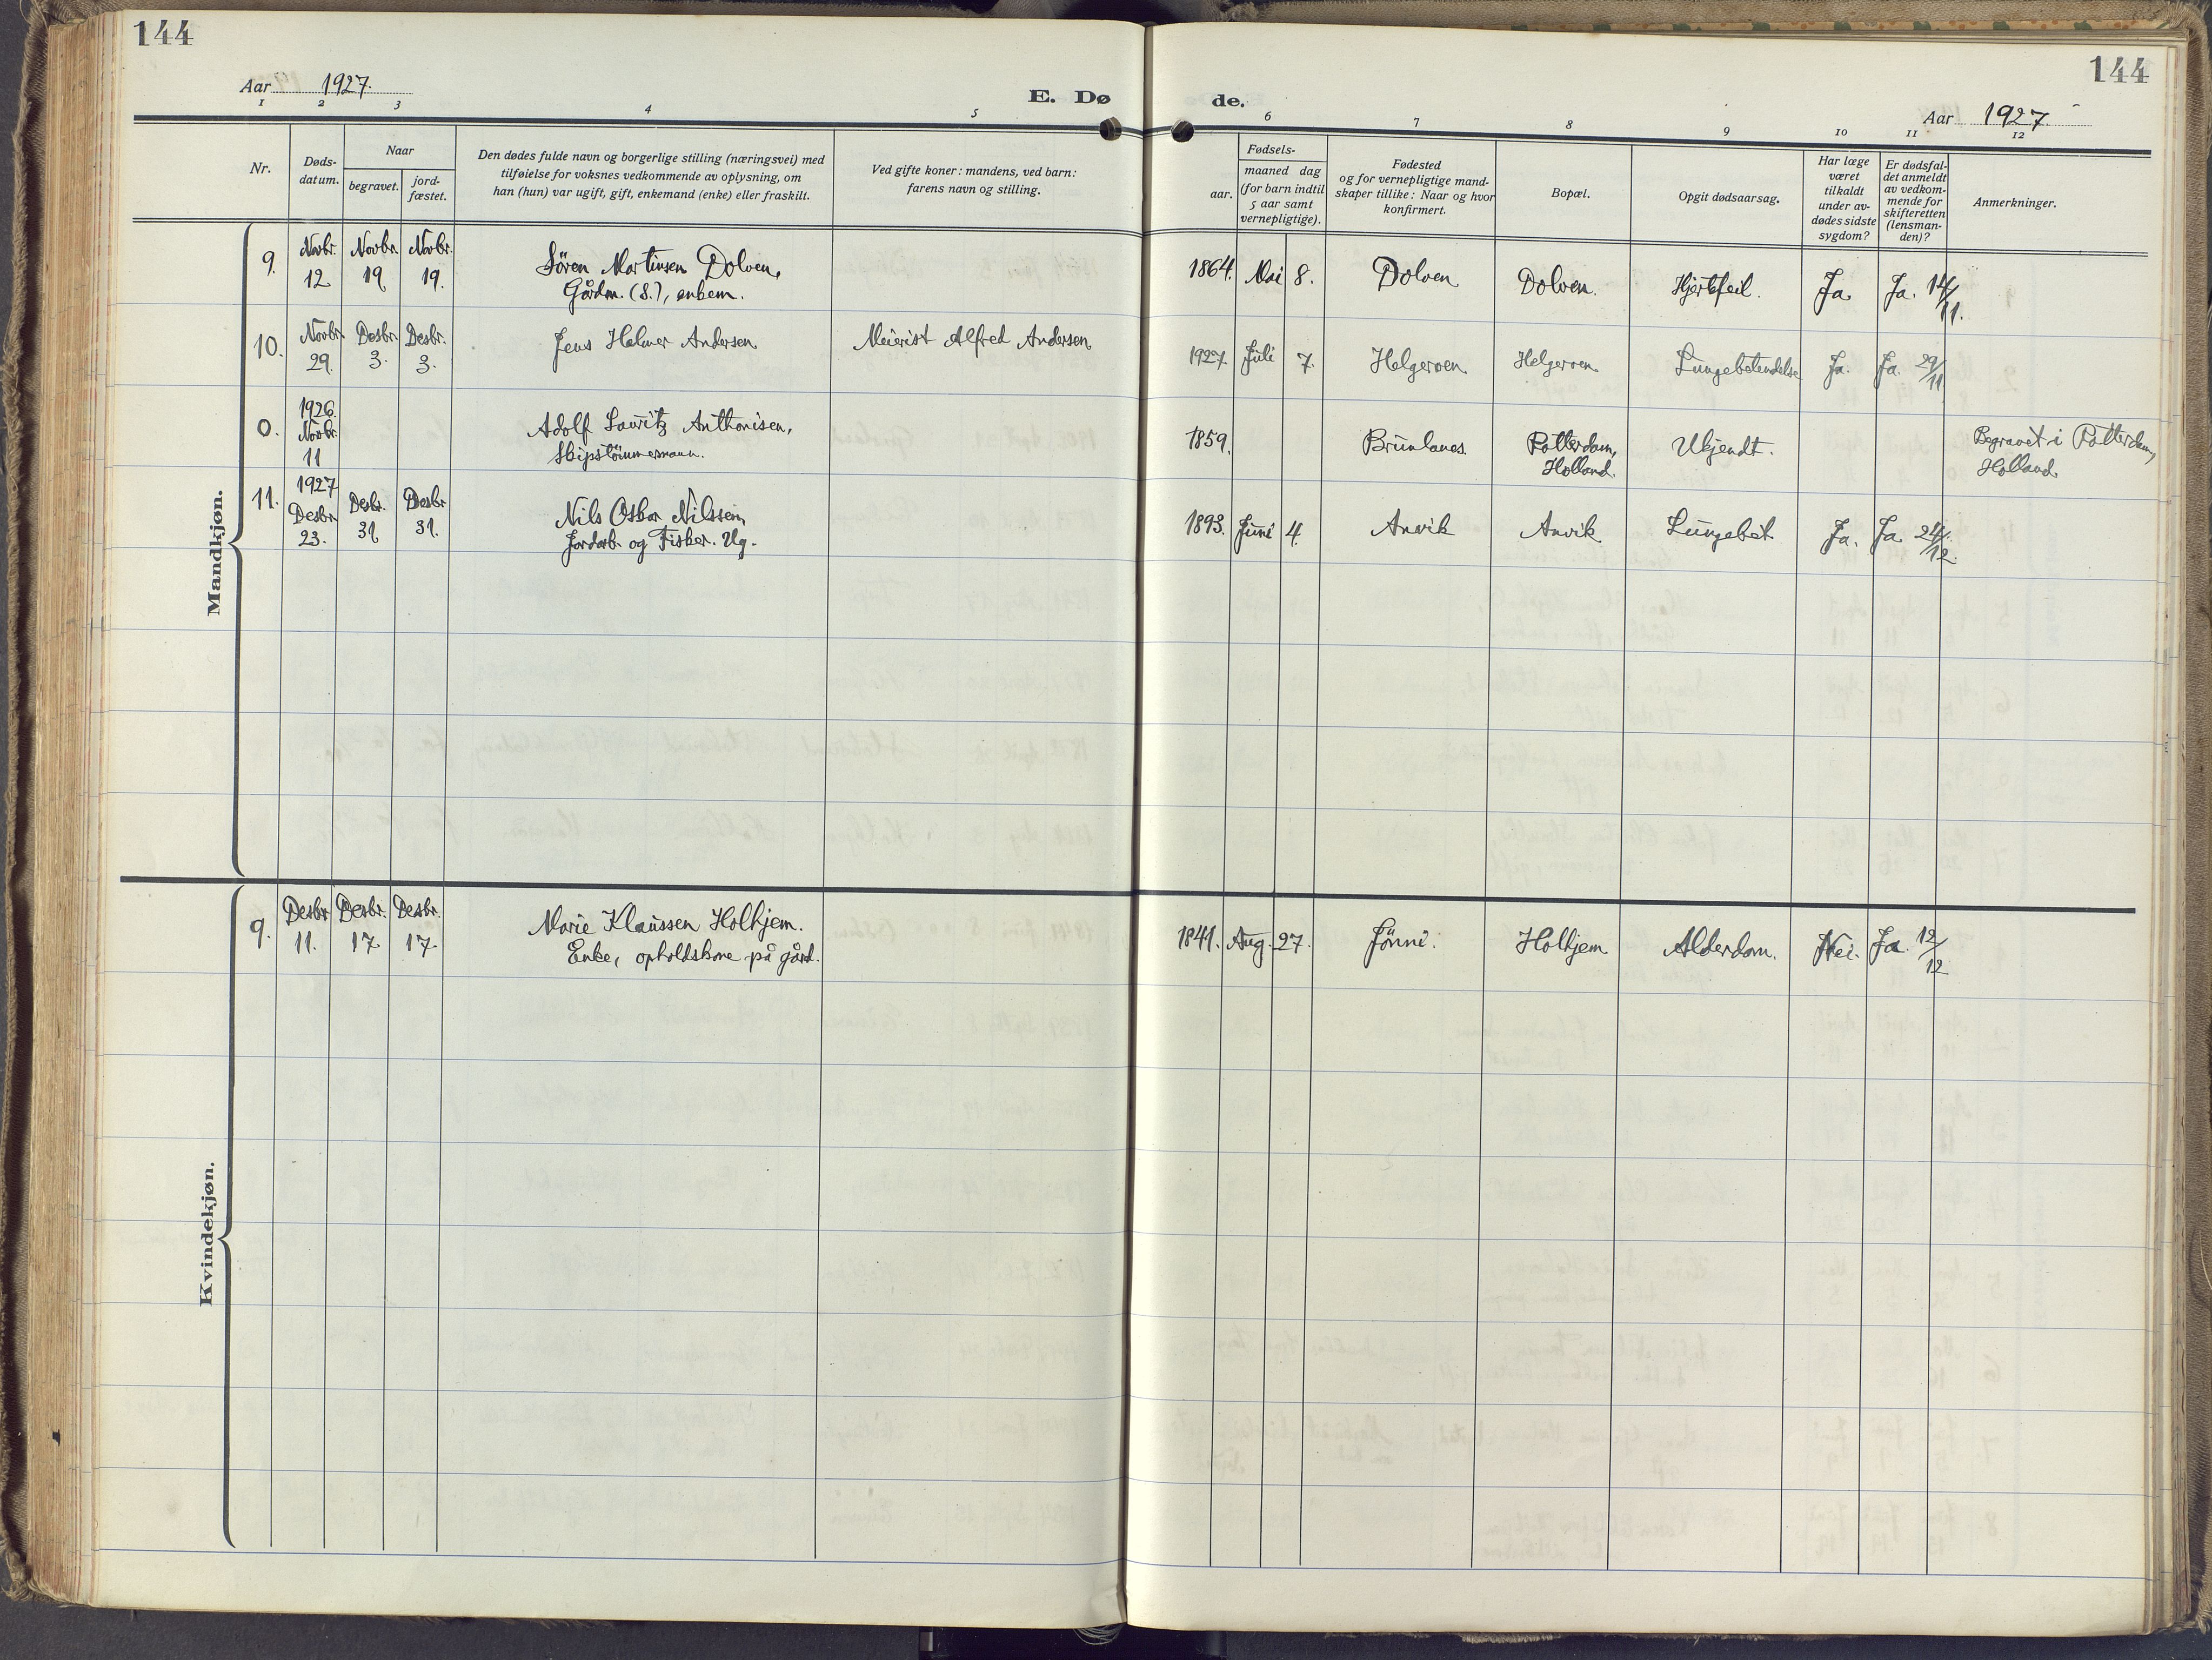 144
144
Aar 1927.
E. Døde.
Aar 1927.
1 2 3 4 5 6 7 8 9 10 11 12
Nr.
Døds-
datum.
Naar
begravet.
jord-
fæstet.
Den dødes fulde navn og borgerlige stilling (næringsvei) med
tilføielse for voksnes vedkommende av oplysning, om
han (hun) var ugift, gift, enkemand (enke) eller fraskilt.
Ved gifte koner: mandens, ved barn:
farens navn og stilling.
Fødsels-
aar.
maaned dag
(for barn indtil
5 aar samt
vernepligtige).
Fødested
og for vernepligtige mand-
skaper tillike: Naar og hvor
konfirmert.
Bopæl.
Opgit dødsaarsag.
Har læge
været
tilkaldt
under av-
dødes sidste
sygdom?
Er dødsfal-
det anmeldt
av vedkom-
mende for
skifteretten
(lensman-
den)?
Anmerkninger.
Mandkjøn.
9. Novbr. 12 Novbr. 19 Novbr. 19. Sören Martinsen Dolven, 1864. Mai 8. Dolven Dolven. Hjertefeil. Ja. Ja. 14/11.
Gårdm. (S.), enkem.
10. Novbr. 29. Desbr. 3. Desbr. 3. Jens Halmer Andersen Meierist Alfred Andersen 1927. Juli 7. Helgeroen Helgeroen Lungebetendelse Ja. Ja. 29/11
0. 1926. Novbr. 11 Adolf Lauritz Anthonisen, 1859. Brunlanes. Rotterdam, Ukjendt. Begravet i Rotterdam,
Skipstömmermann. Holland Holland
11. 1927 Desbr. 23. Desbr. 31. Desbr. 31. Nils Oskar Nilssen, 1893. Juni 4. Anvik Anvik Lungebet Ja. Ja 24/12.
Jordarb. og Fisker. Ug.
Kvindekjøn.
9. Desbr. 11. Desbr. 17 Desbr. 17. Marie Klaussen Holhjem. 1841. Aug. 27. Jönni. Holhjem Alderdom. Nei. Ja. 12/12
Enke, opholdskone på gård.